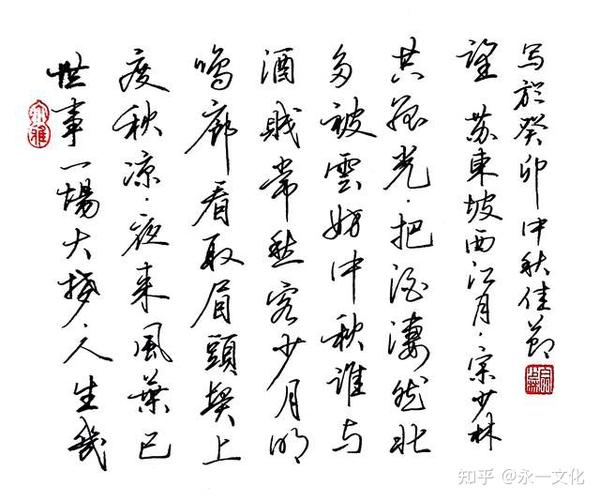 世事一場大夢·人生幾
度秋凉·夜来風葉已
鳴廊看取眉頭鬢上
酒賤常愁客少月明
多被雲妨中秋誰与
共孤光·把酒凄然北
望 苏東坡西江月·宋少林
写於癸卯中秋佳節
知乎 @永一文化